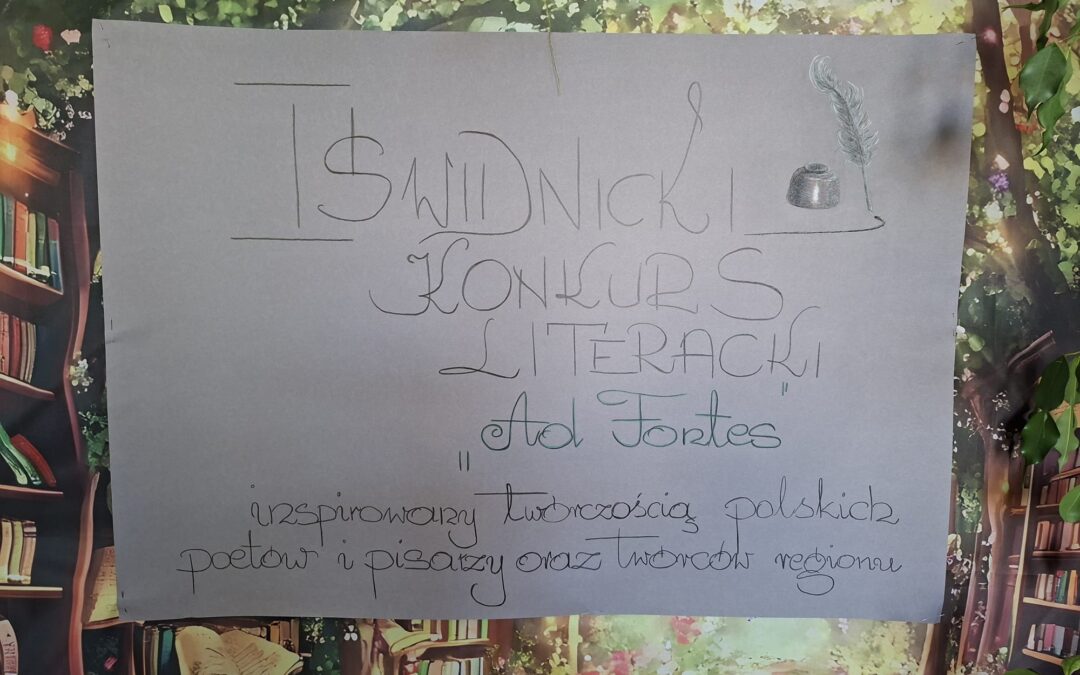 I SWIDNICKI
KONKURS
LITERACKI
„Ad Fontes"
inspirowany twórczością polskich
poetów i pisarzy oraz twórców regionu